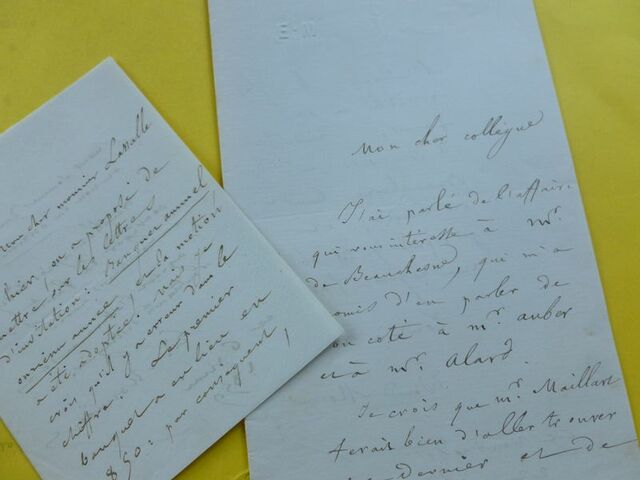 mon cher monsieur Lassalle
hier, on a proposé de
mettre sur les lettres
d'invitation: Banquet annuel
onzième année, et la motion
a été adoptée. mais je
crois qu'il y a erreur dans le
chiffre. Le premier
banquet a eu lieu en
1850: par conséquent,
Mon cher collègue
J'ai parlé de l'affaire
qui vous intéresse à Mr.
de Beauchesne, qui m'a
promis d'en parler de
son coté à Mr. auber
et à Mr. Alard.
Je crois que Mr. Maillart
ferait bien d'aller trouver
ce dernier et de